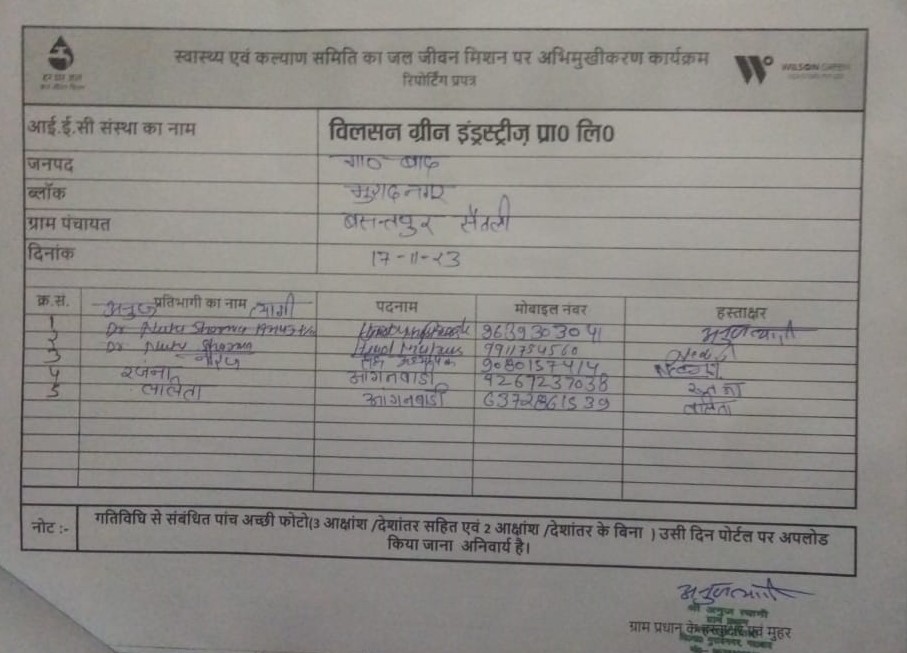 हर घर जल
स्वास्थ्य एवं कल्याण समिति का जल जीवन मिशन पर अभिमुखीकरण कार्यक्रम
रिपोर्टिंग प्रपत्र
WILSON GREEN
आई.ई.सी संस्था का नाम विलसन ग्रीन इंड्रस्ट्रीज़ प्रा0 लि0
जनपद गा० बाद
ब्लॉक मुरादनगर
ग्राम पंचायत बसन्तपुर सैतली
दिनांक 17-11-23
क्र.सं. प्रतिभागी का नाम पदनाम मोबाइल नंबर हस्ताक्षर
अनुज त्यागी
1 अनुज त्यागी
2 Dr 9639303041
3 Dr. Neeru Sharma 7911754560
नीरज 9080157414
4 रजना आगनवाडी 9267237038
5 ललिता आगनबाडी 6372861539 ललिता
नोट :- गतिविधि से संबंधित पांच अच्छी फोटो(3 आक्षांश /देशांतर सहित एवं 2 आक्षांश /देशांतर के बिना ) उसी दिन पोर्टल पर अपलोड
किया जाना अनिवार्य है।
अनुज त्यागी
श्री अनुज त्यागी
ग्राम प्रधान के हस्ताक्षर एवं मुहर